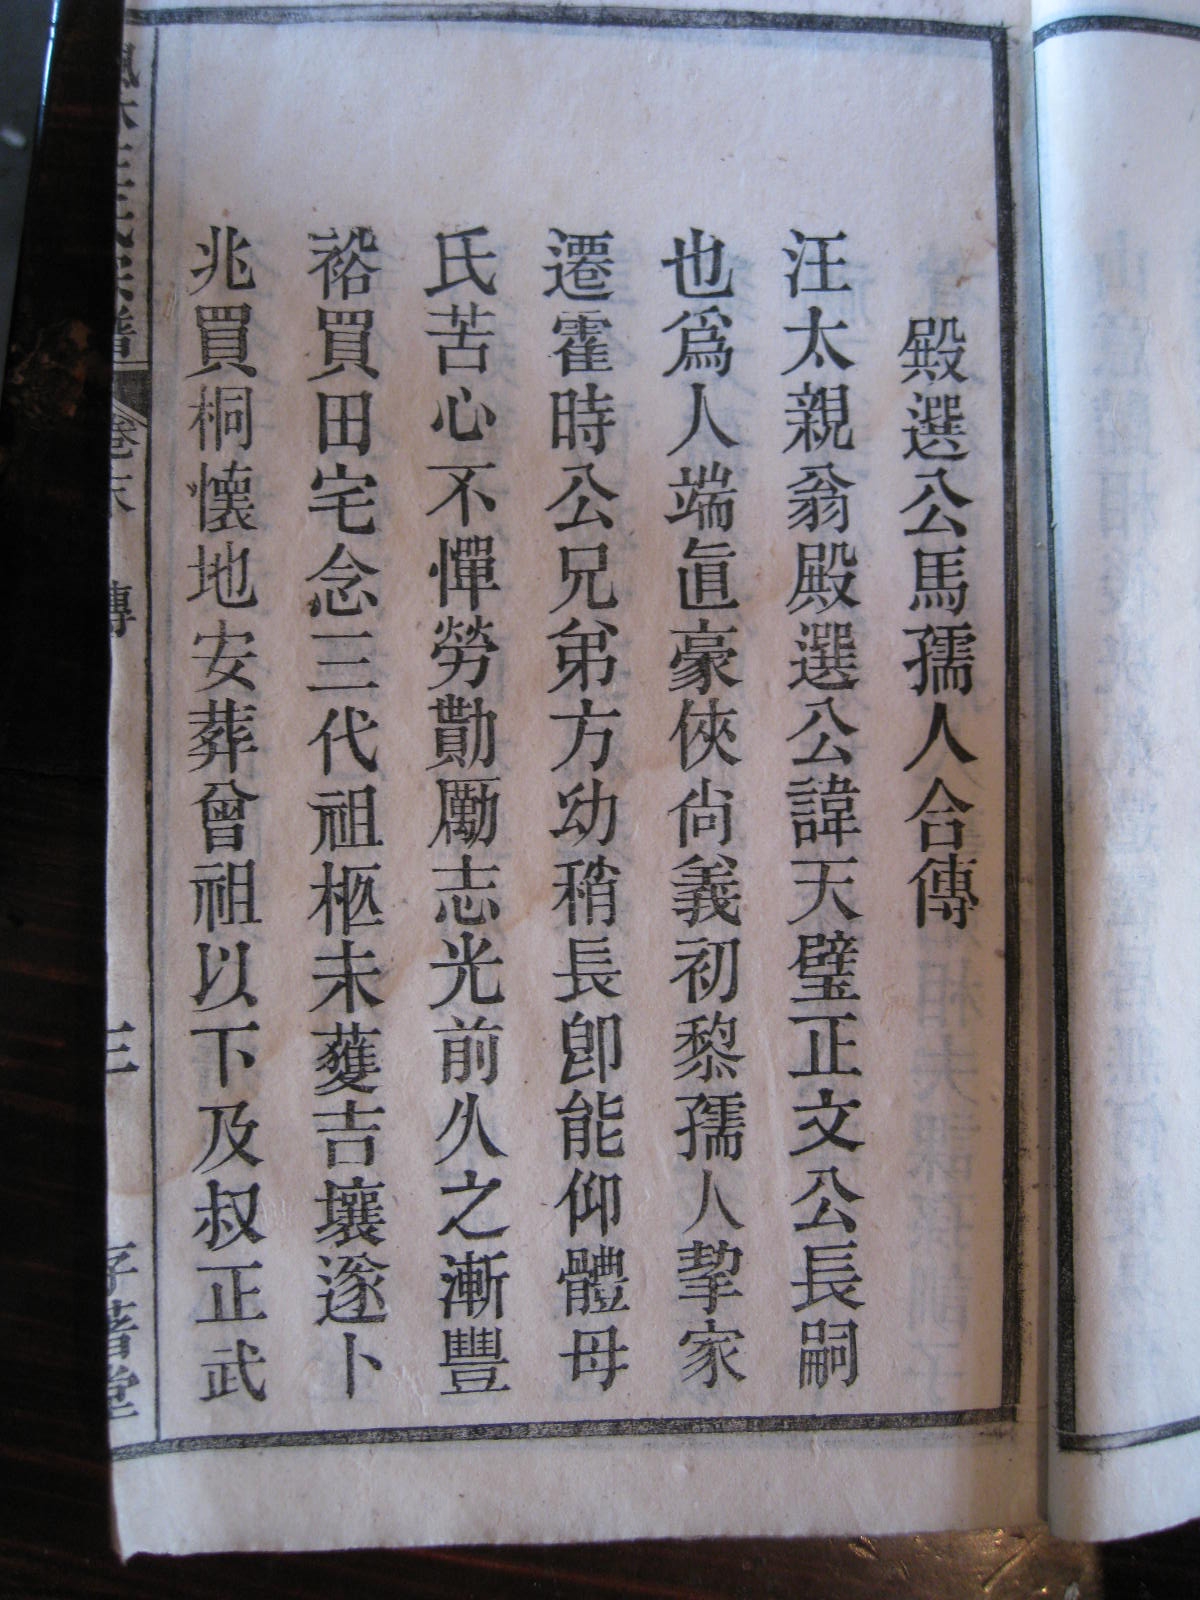 殿選公馬孺人合傳
汪太親翁殿選公諱天璧正文公長嗣
也爲人端眞豪俠尙義初黎孺人挈家
遷霍時公兄弟方幼稍長卽能仰體母
氏苦心不憚勞勩勵志光前久之漸豐
裕買田宅念三代祖柩未蕿吉壤遂卜
兆買桐懷地安葬曾祖以下及叔正武
汪氏宗譜
卷末
傳
三